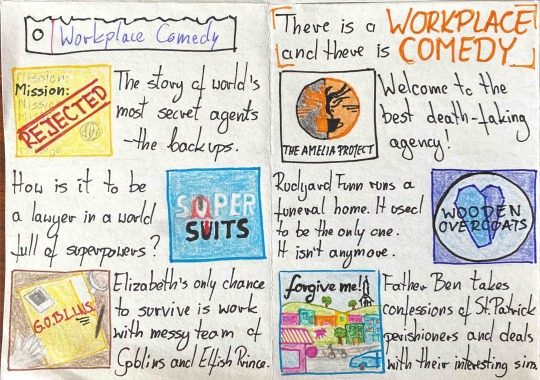 Workplace Comedy
Mission:
Mission:
REJECTED
The story of world's
most secret agents
– the backups.
How is it to be
a lawyer in a world
full of superpowers?
SUPER
SUITS
G.O.B.L.I.N.S.
Elizabeth's only chance
to survive is work
with messy team of
Goblins and Elfish Prince.
There is a WORKPLACE
and there is COMEDY
THE AMELIA PROJECT
Welcome to the
best death-faking
agency!
Rudyard Funn runs a
funeral home. It used
to be the only one.
It isn't anymore.
WOODEN
OVERCOATS
forgive me!
Father Ben takes
confessions of St. Patrick
perishioners and deals
with their interesting sins.